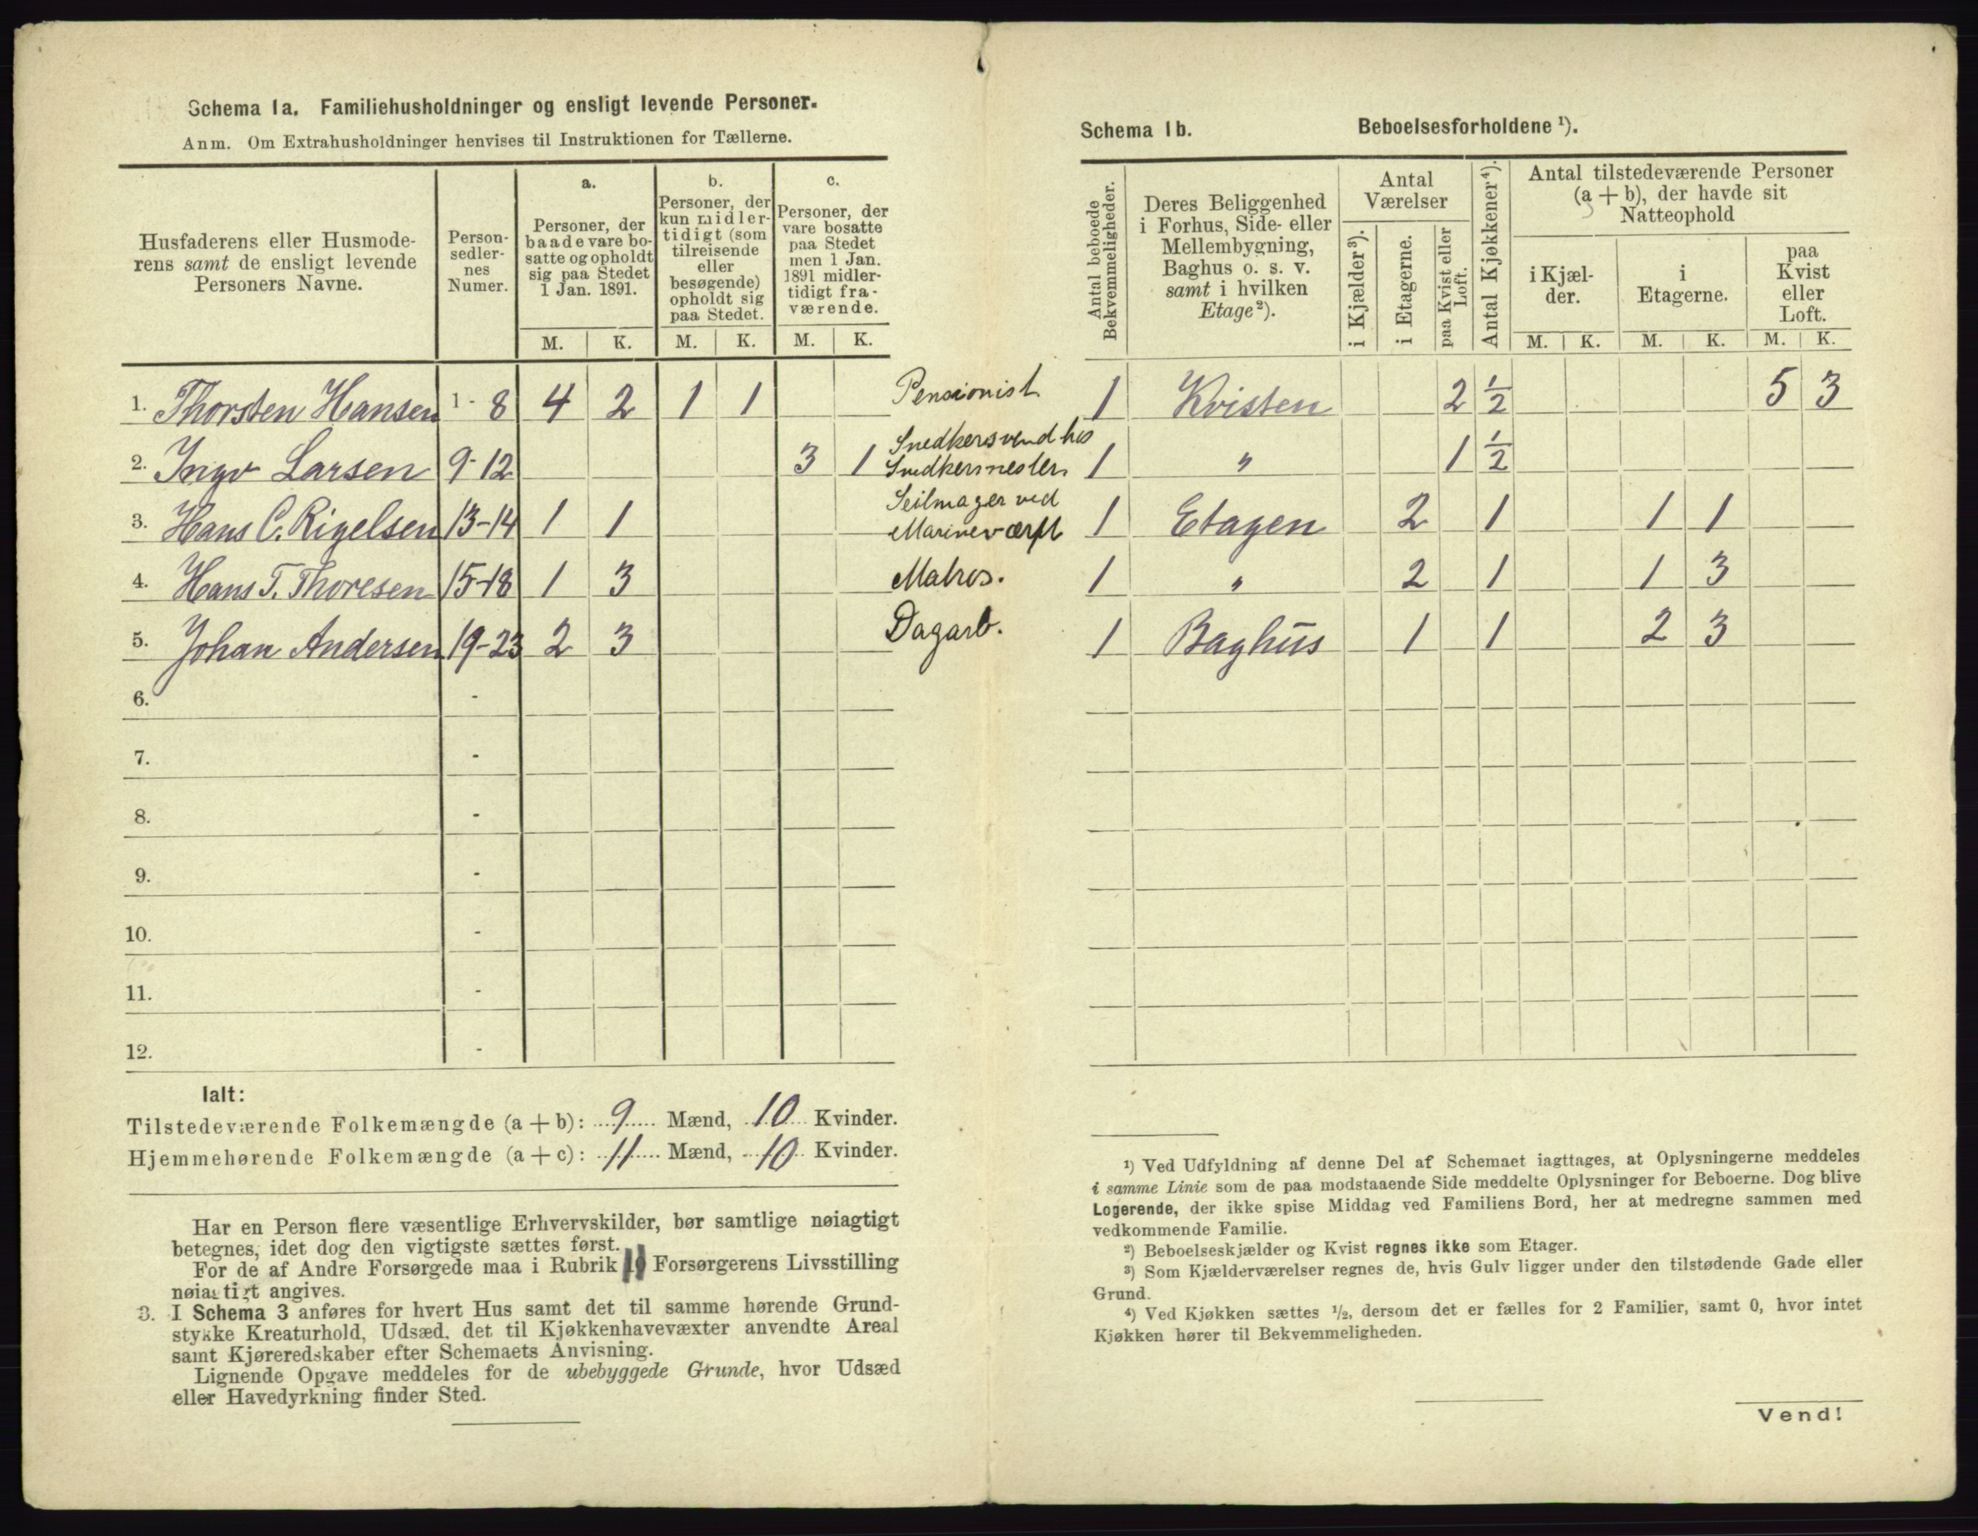 Schema 1a. Familiehusholdninger og ensligt levende Personer.
Anm. Om Extrahusholdninger henvises til Instruktionen for Tællerne.
Husfaderens eller Husmode-
rens samt de ensligt levende
Personers Navne.
Person-
sedler-
nes
Numer.
a.
Personer, der
baade vare bo-
satte og opholdt
sig paa Stedet
1 Jan. 1891.
b.
Personer, der
kun midler-
tidigt (som
tilreisende
eller
besøgende)
opholdt sig
paa Stedet.
c.
Personer, der
vare bosatte
paa Stedet
men 1 Jan.
1891 midler-
tidigt fra-
værende.
M. K. M. K. M. K.
1. Thorsten Hansen 1 - 8 4 2 1 1 Pensionist
2. Ingv Larsen 9-12 3 1 Snedkersvend hos
Snedkermester
3. Hans C. Rigelsen 13-14 1 1 Seilmager ved
Marineværft
4. Hans T. Thoresen 15-18 1 3 Matros.
5. Johan Andersen 19-23 2 3 Dagarb.
6. -
7. -
8. -
9. -
10. -
11. -
12. -
Ialt:
Tilstedeværende Folkemængde (a + b): 9 Mænd, 10 Kvinder.
Hjemmehørende Folkemængde (a + c): 11 Mænd, 10 Kvinder.
Har en Person flere væsentlige Erhvervskilder, bør samtlige nøiagtigt
betegnes, idet dog den vigtigste sættes først.
For de af Andre Forsørgede maa i Rubrik 11 Forsørgerens Livsstilling
nøiagtigt angives.
3. I Schema 3 anføres for hvert Hus samt det til samme hørende Grund-
stykke Kreaturhold, Udsæd, det til Kjøkkenhavevæxter anvendte Areal
samt Kjøreredskaber efter Schemaets Anvisning.
Lignende Opgave meddeles for de ubebyggede Grunde, hvor Udsæd
eller Havedyrkning finder Sted.
Schema 1b. Beboelsesforholdene ¹).
Antal beboede
Bekvemmeligheder.
Deres Beliggenhed
i Forhus, Side- eller
Mellembygning,
Baghus o. s. v.
samt i hvilken
Etage²).
Antal
Værelser
i Kjælder³).
i Etagerne.
paa Kvist eller
Loft.
Antal Kjøkkener⁴).
Antal tilstedeværende Personer
(a + b), der havde sit
Natteophold
i Kjæl-
der.
i
Etagerne.
paa
Kvist
eller
Loft.
M. K. M. K. M. K.
1 Kvisten 2 ½ 5 3
1 " 1 ½
1 Etagen 2 1 1 1
1 " 2 1 1 3
1 Baghus 1 1 2 3
¹) Ved Udfyldning af denne Del af Schemaet iagttages, at Oplysningerne meddeles
i samme Linie som de paa modstaaende Side meddelte Oplysninger for Beboerne. Dog blive
Logerende, der ikke spise Middag ved Familiens Bord, her at medregne sammen med
vedkommende Familie.
²) Beboelseskjælder og Kvist regnes ikke som Etager.
³) Som Kjælderværelser regnes de, hvis Gulv ligger under den tilstødende Gade eller
Grund.
⁴) Ved Kjøkken sættes ½, dersom det er fælles for 2 Familier, samt 0, hvor intet
Kjøkken hører til Bekvemmeligheden.
Vend!